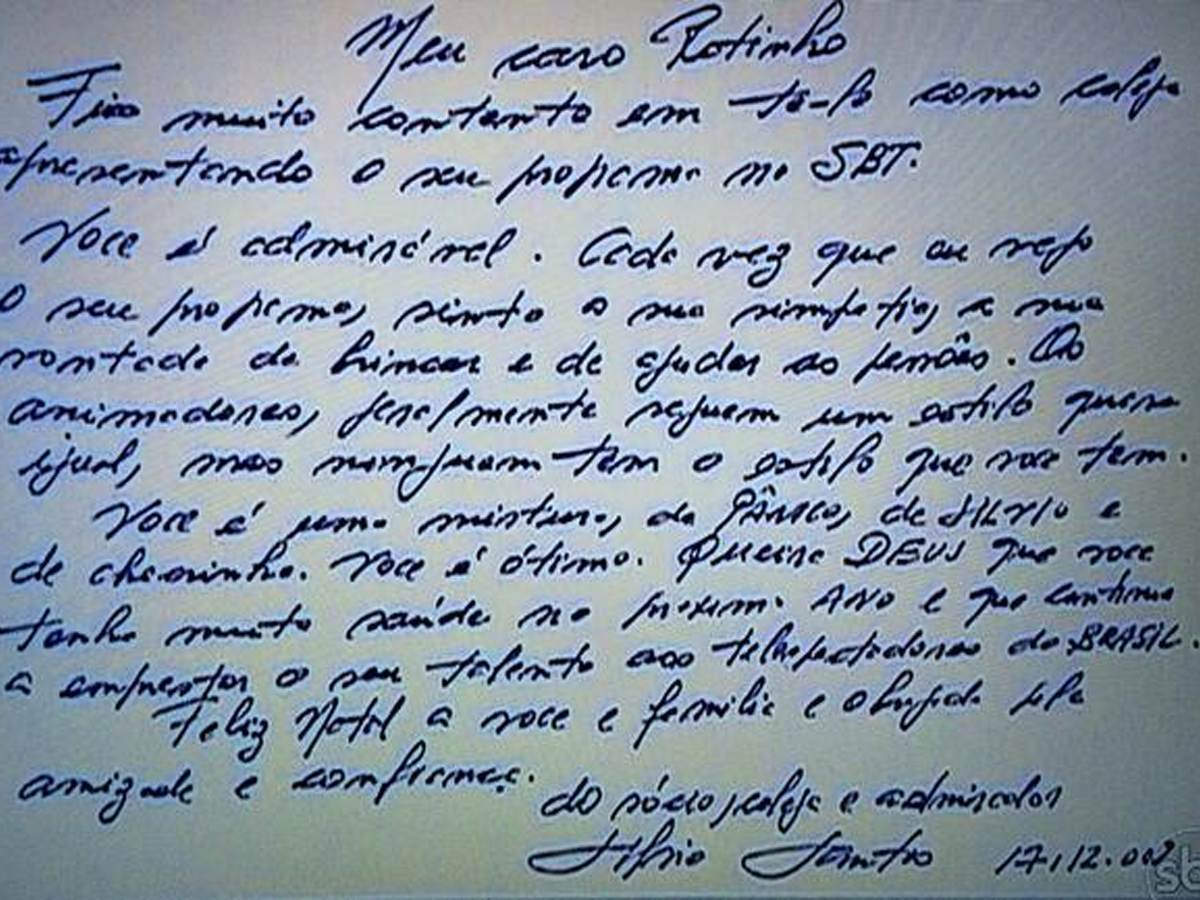 Meu caro Ratinho
Fico muito contente em tê-lo como colega
apresentando o seu programa no SBT.
Voce é admirável. Cada vez que eu vejo
o seu programa, sinto a sua simpatia, a sua
vontade de brincar e de ajudar as pessôas. Os
animadores, geralmente seguem um estilo quase
igual, mas ninguem tem o estilo que voce tem.
Voce é uma mistura, de PÂNICO, de SILVIO e
de chacrinha. Voce é ótimo. Queira DEUS que voce
tenha muita saúde no proximo ANO e que continue
a emprestar o seu talento aos telespectadores do BRASIL.
Feliz Natal a voce e familia e obrigado pela
amizade e confiança.
do sócio, colega e admirador
Silvio Santos 17.12.